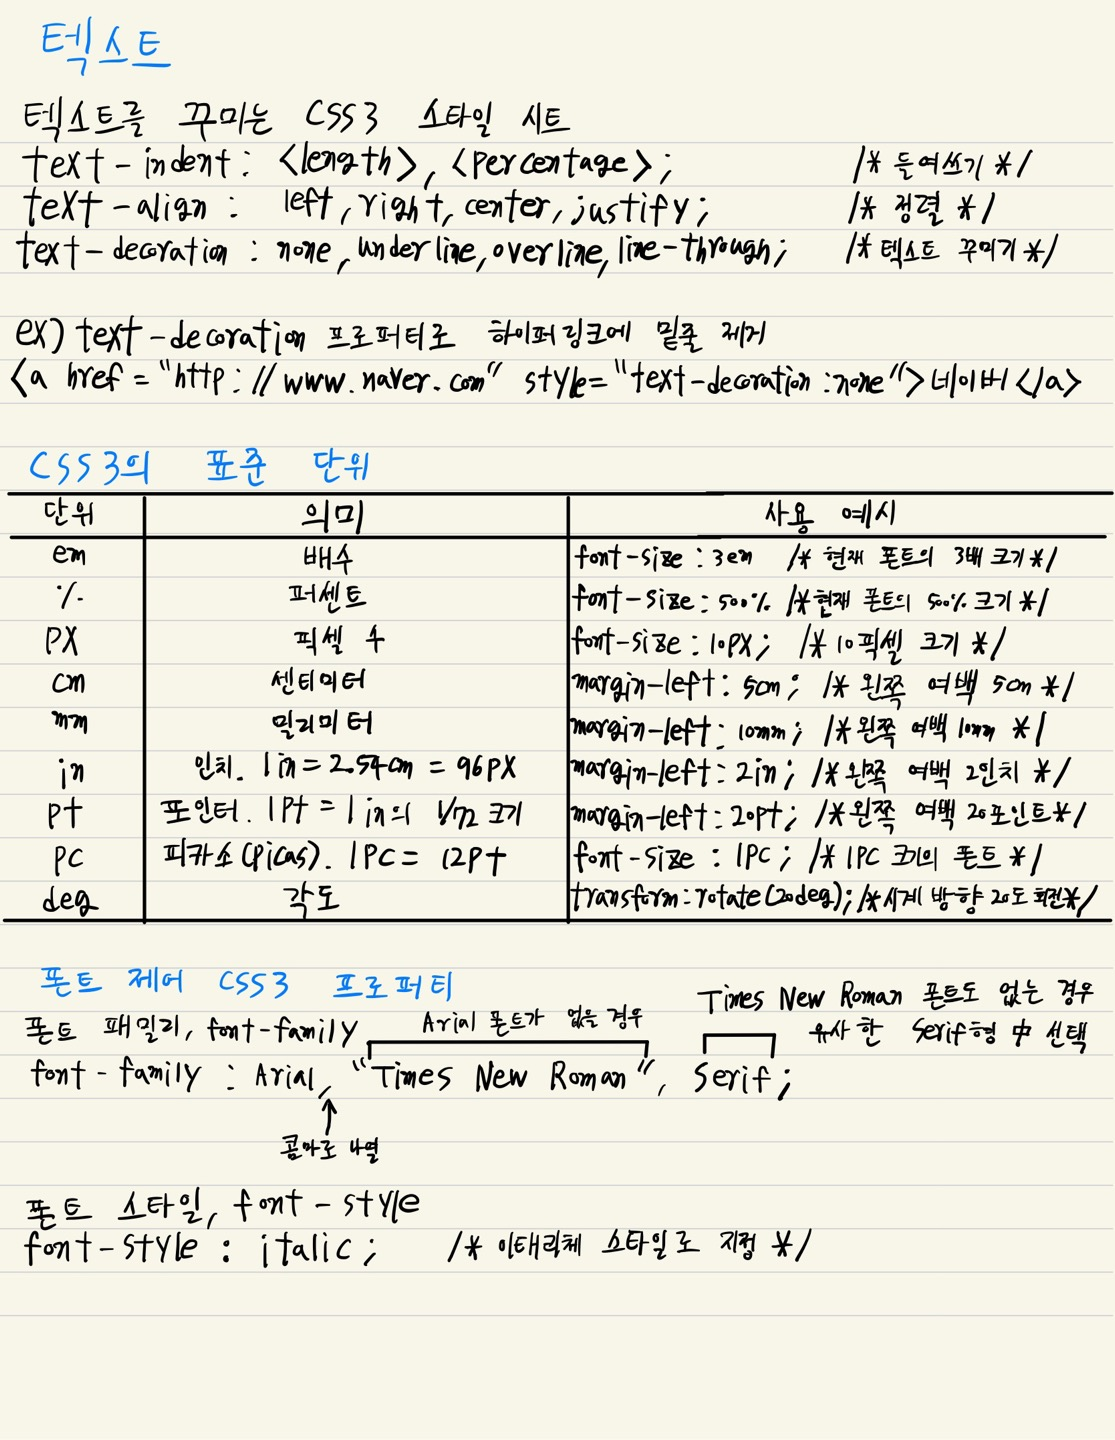 텍스트
텍스트를 꾸미는 CSS3 스타일 시트
text-indent: <length>, <percentage>; /* 들여쓰기 */
text-align : left, right, center, justify; /* 정렬 */
text-decoration : none, underline, overline, line-through; /* 텍스트 꾸미기 */
ex) text-decoration 프로퍼티로 하이퍼링크에 밑줄 제거
<a href = "http://www.naver.com" style="text-decoration:none">네이버</a>
CSS3의 표준 단위
단위 의미 사용 예시
em 배수 font-size : 3em /* 현재 폰트의 3배 크기 */
% 퍼센트 font-size : 500% /* 현재 폰트의 500% 크기 */
PX 픽셀 수 font-size : 10PX; /* 10픽셀 크기 */
cm 센티미터 margin-left : 5cm; /* 왼쪽 여백 5cm */
mm 밀리미터 margin-left : 10mm; /* 왼쪽 여백 10mm */
in 인치. 1in = 2.54cm = 96PX margin-left : 2in; /* 왼쪽 여백 2인치 */
pt 포인터. 1Pt = 1in의 1/72 크기 margin-left : 20pt; /* 왼쪽 여백 20포인트 */
PC 피카소(Picas). 1PC = 12Pt font-size : 1PC; /* 1PC 크기의 폰트 */
deg 각도 transform:rotate(20deg); /* 시계 방향 20도 회전 */
폰트 제어 CSS3 프로퍼티
Times New Roman 폰트도 없는 경우
폰트 패밀리, font-family Arial 폰트가 없을 경우 유사한 Serif형 中 선택
font-family : Arial, "Times New Roman", Serif;
콤마로 나열
폰트 스타일, font-style
font-style : italic; /* 이태릭체 스타일로 지정 */